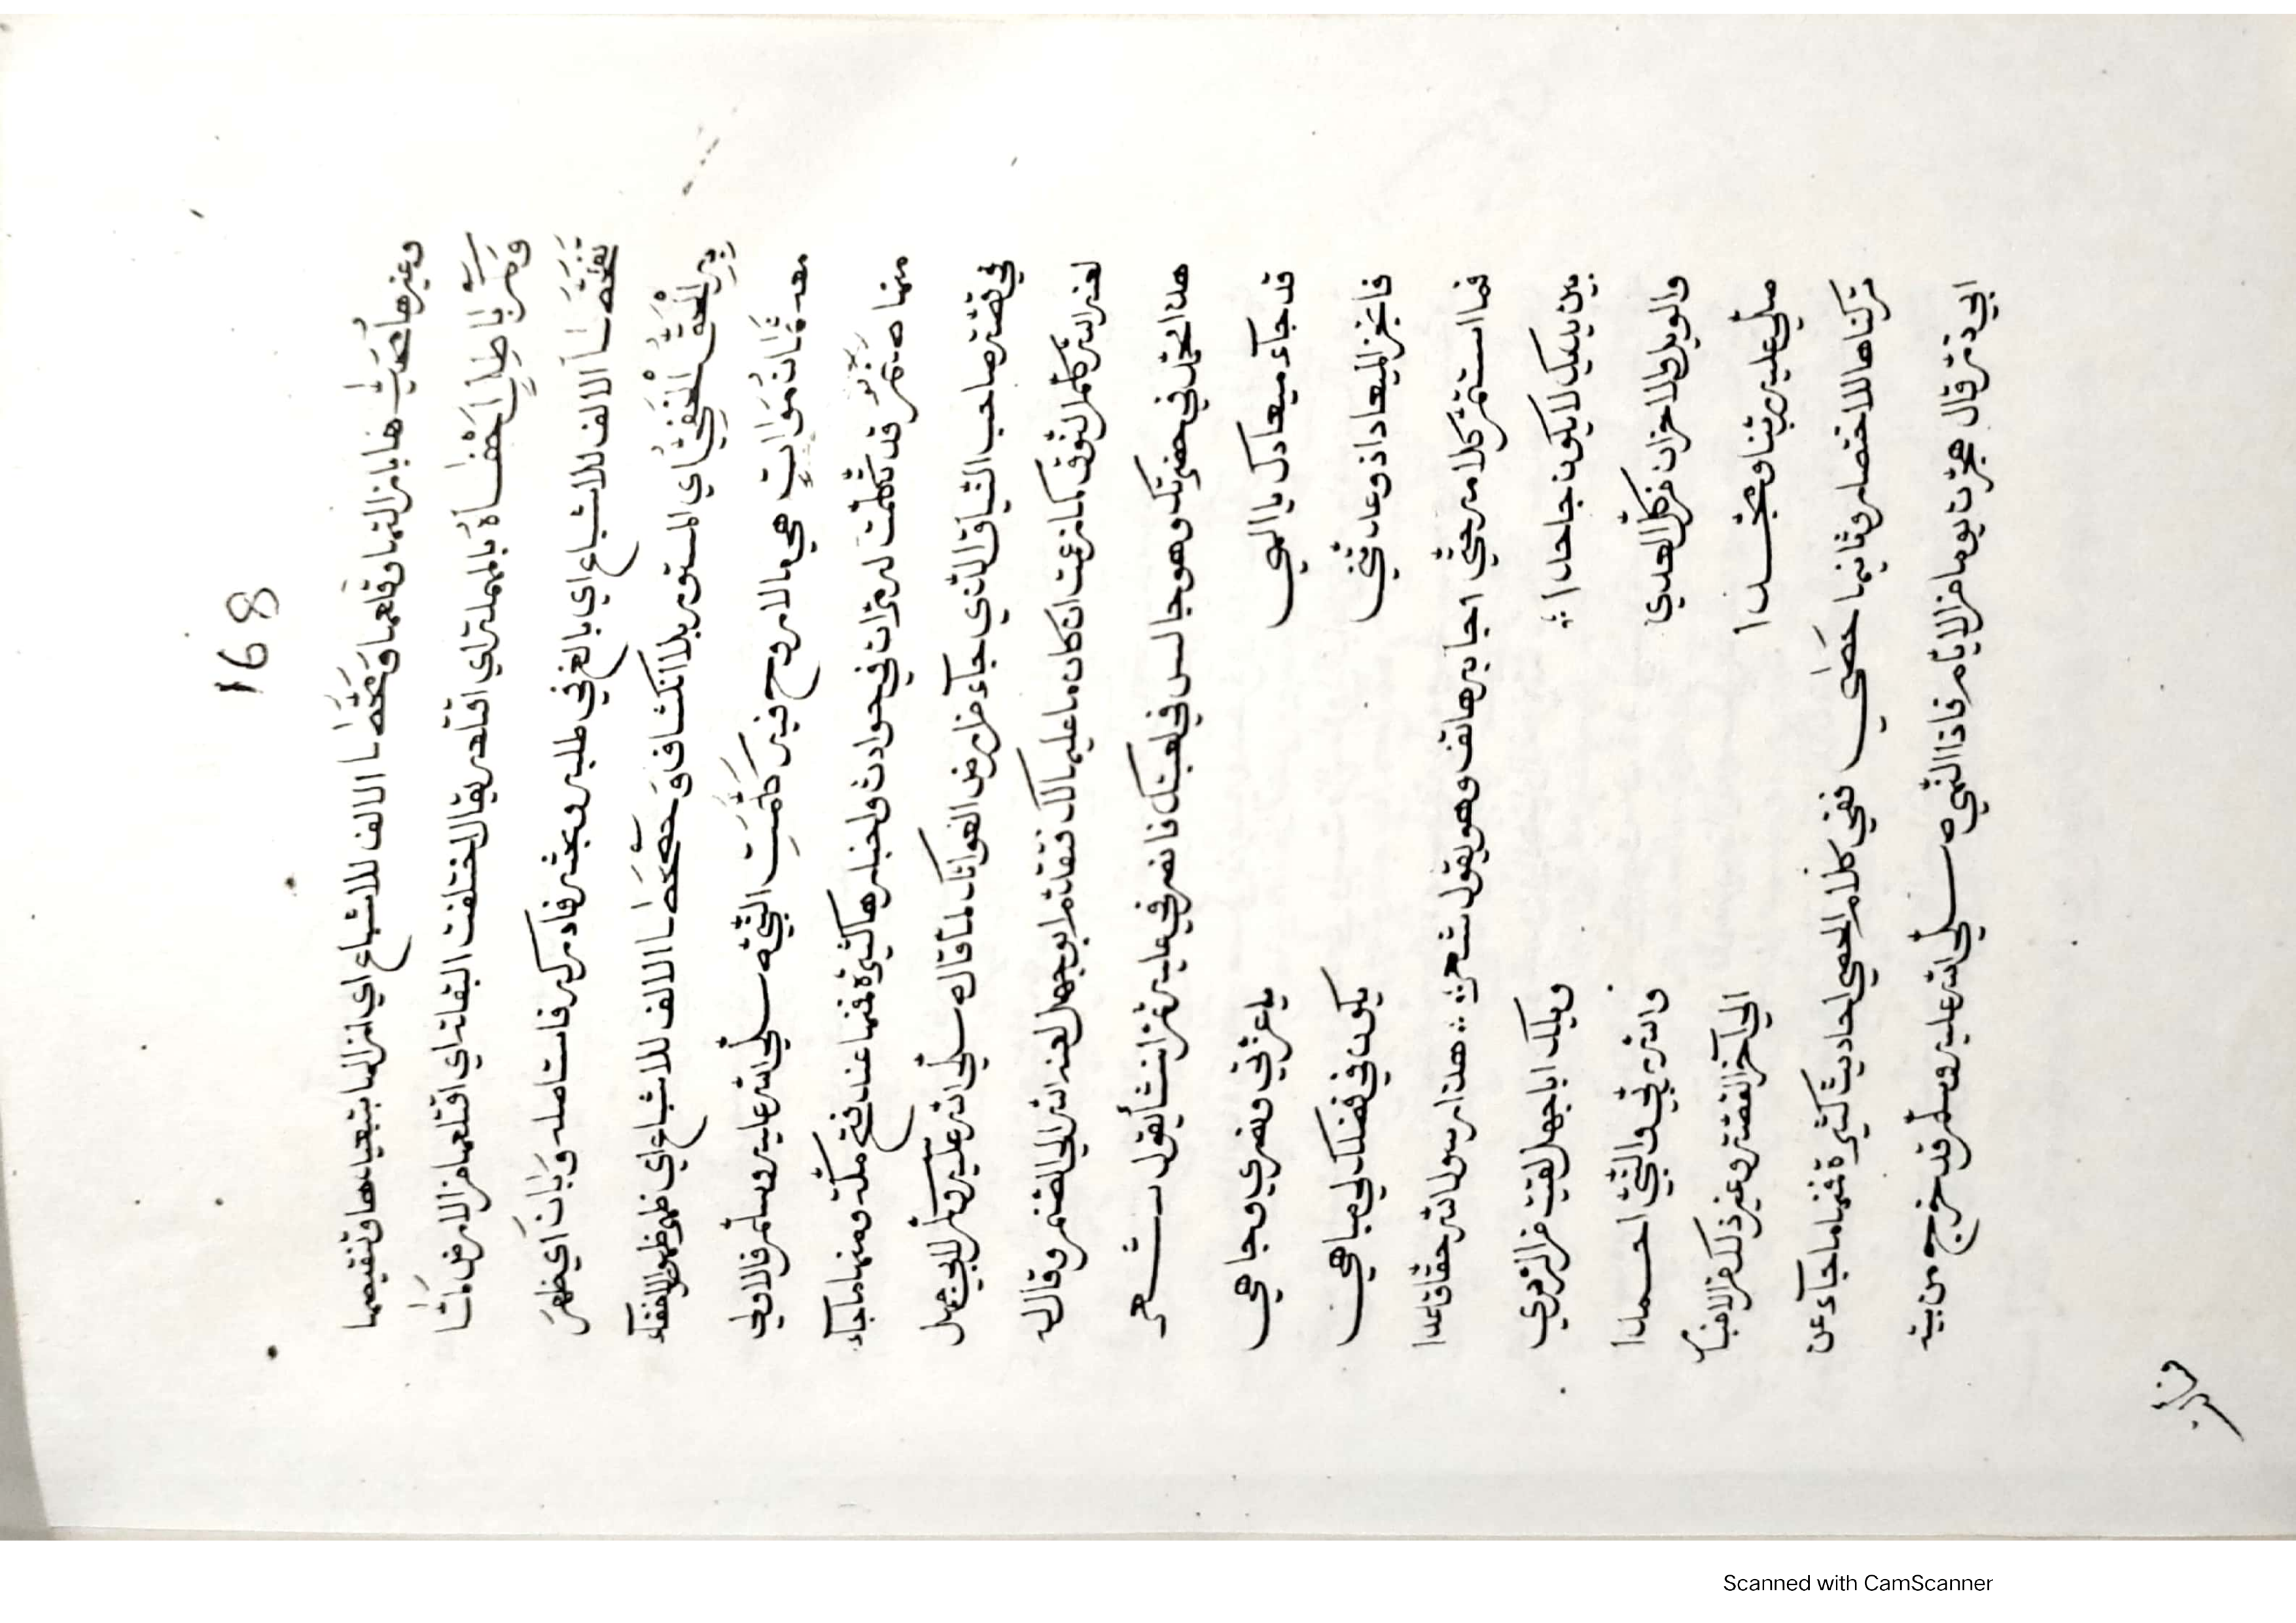 168
وغيرها أصيب هابا نزالتها وقلعها ومحصا الالف للاشباع اي انزالها بتعييبها وتنقيصها
وكم باطل اخفاه بالمهملة اي اقتلعه يقال اختلفت البقلة اي اقتلعها من الارض لما
تفحصا الالف للاشباع اي بالغ في طلبه وبحثه فادركه فاستاصله وبان اي ظهر
بدر الحق الخفي اي المستور بلا انكشاف وحصحصا الالف للاشباع اي ظهر ظهور الخفاء
معه ثمان موات هي مالا روح فيه كلمت النبي صلى الله عليه وسلم فالاولى
منها صنم قد تكلمت له مرات في حوادث واخبارها كثيرة فمنها عند فتح مكة ومنها ما جاء
في قصة صاحب النياق الذي جاء من ارض العواتك لما قال صلى الله عليه وسلم لابي جهل
لعنه الله كلم النوق كما زعمت ان كان ما عليها لك فتقدم ابو جهل لعنه الله الى الصنم وقال له
هذا محمد في حضرتك وهو جالس في لعبتك فانصرني عليه ثم انشأ يقول شعر
قد جاء ميعادك يا الهي يا عزتي ونصري وجاهي
فانجز الميعاد اذ وعدتني يكون في فضلك لي مباهي
فما استتم كلامه حتى اجابه هاتف وهو يقول شعر هذا رسول الله حقا قد غدا
بين يديك لا يكون جاحدا ويلك ابا جهل لقيت من الردي
والويل والاحزان من كل العدي والله ربي والنبي احمدا
صلى عليه ربنا ومجدا الى آخر القصة وغير ذلك من الاخبار
تركناها للاختصار وثانيها حصى ففي كلام الحصى احاديث كثيرة فمنها ما جاء عن
ابي ذر قال هجرت يوما من الايام فاذا النبي صلى الله عليه وسلم قد خرج من بيته